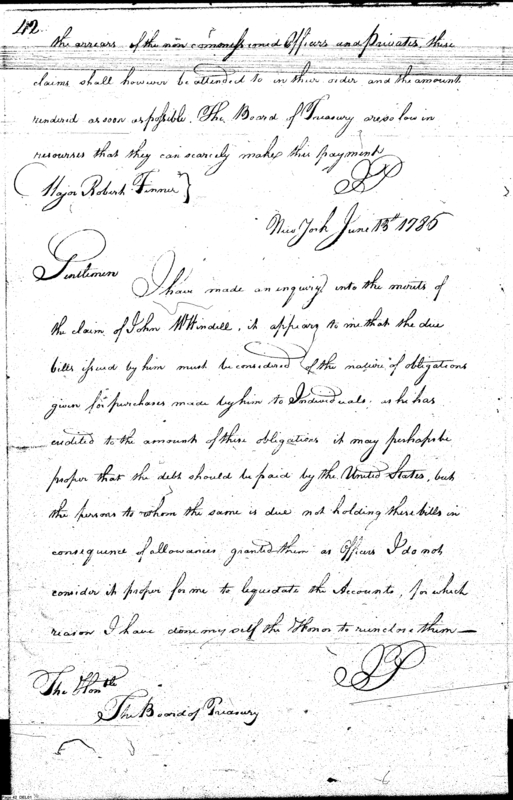 42
the arrears of the non commissioned Officers and Privates, these
claims shall however be attended to in their order and the amount
rendered as soon as possible. The Board of Treasury are so low in
resourses that they can scarcely make this payment
JP
(Major Robert Finner}
New York June 13th 1786
Gentlemen
I have made an enquiry into the merits of
the claim of John W Hindell, it appears to me that the due
bills issued by him must be considered of the nature of obligations
given for purchases made by him to Individuals. as he has
credited to the amount of these obligations it may perhaps be
proper that the debt should be paid by the United States, but
the persons to whom the same is due not holding these bills in
consequence of allowances granted them as Officers I do not
consider it proper for me to liquidate the Accounts, for which
reason I have done my self the Honor to reinclose them—
JP
The Honble
The Board of Treasury